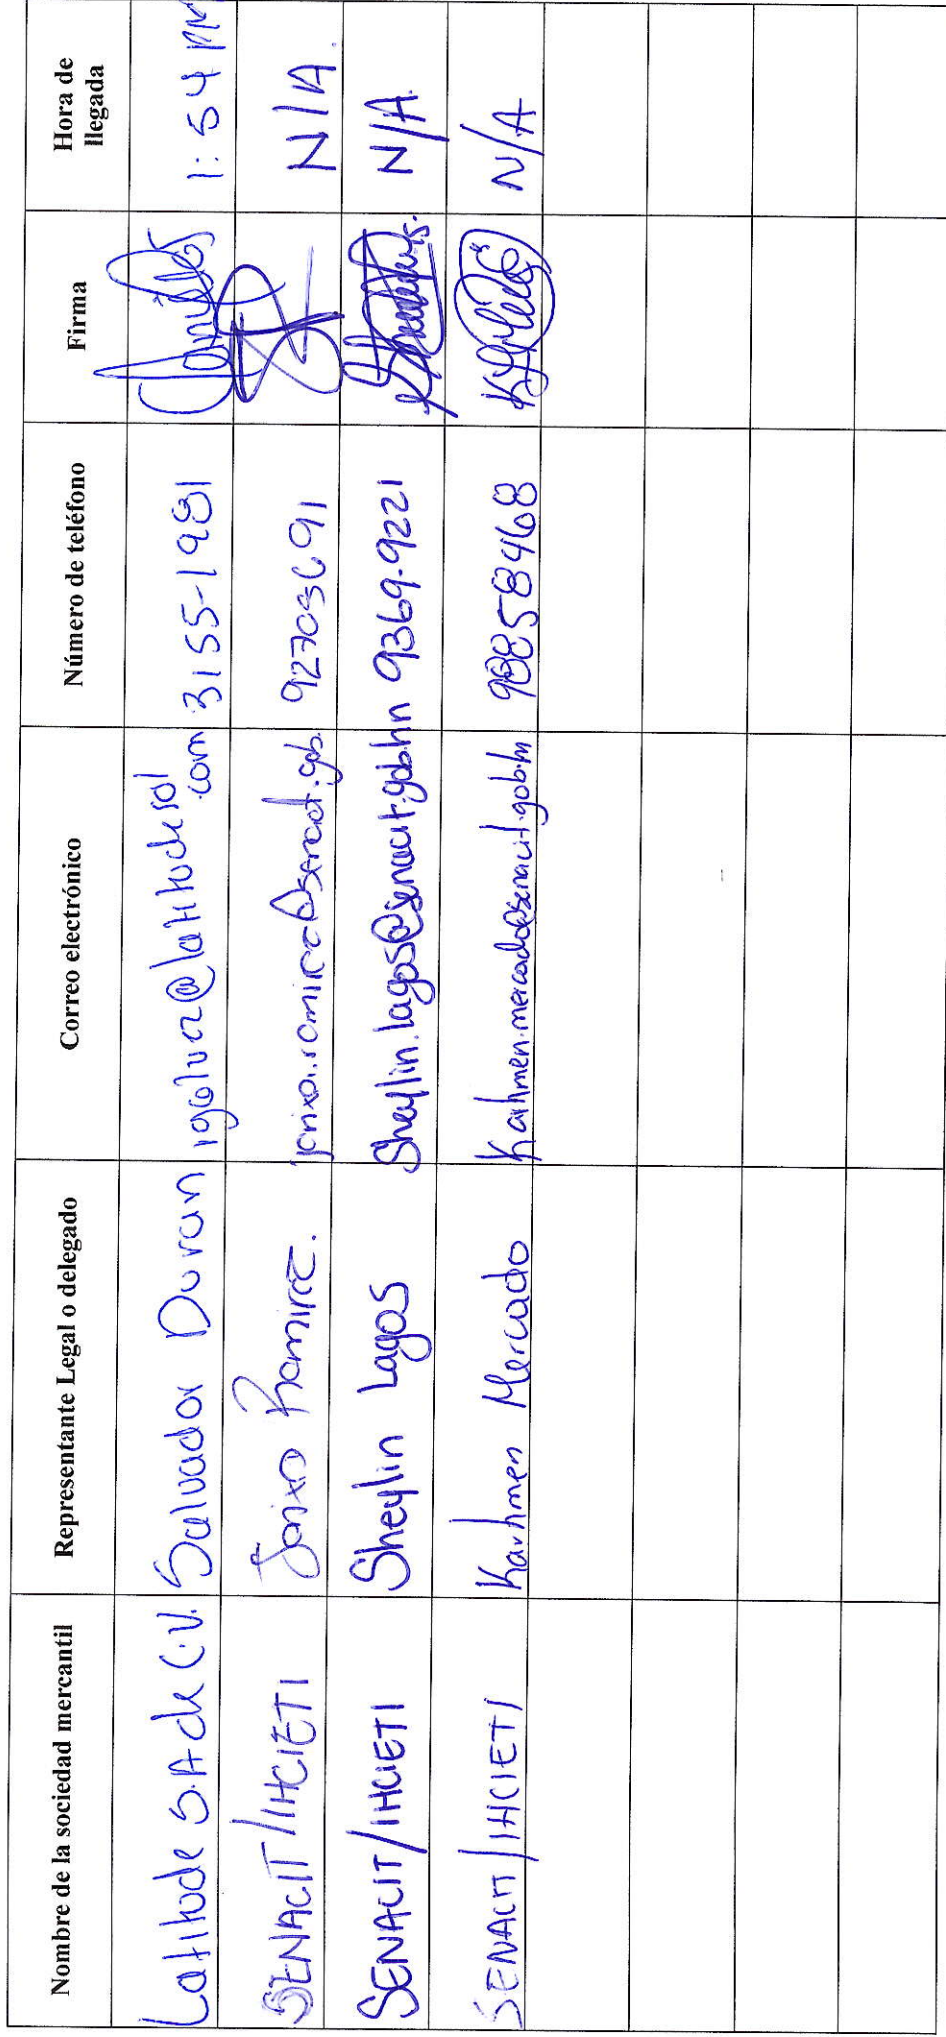 Nombre de la sociedad mercantil
Representante Legal o delegado
Correo electrónico
Número de teléfono
Firma
Hora de
llegada
Latitude S.A de C.V.
Salvador Duran
@latitudesol
.com
3155-1981
1:54 PM
SENACIT/IHCIETI
Ramirez.
N/A.
SENACIT/IHCIETI
Sheylin Lagos
Sheylin.lagos@senacit.gob.hn
9369-9221
N/A
SENACIT/IHCIETI
Karhmen Mercado
Karhmen.mercado@senacit.gob.hn
N/A